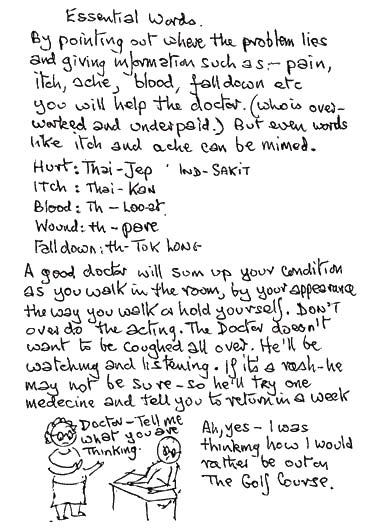 Essential Words.
By pointing out where the problem lies
and giving information such as:- pain,
itch, ache, blood, fall down etc
you will help the doctor. (who is over-
worked and underpaid.) But even words
like itch and ache can be mimed.
Hurt: Thai-Jep ' IND-SAKIT
Itch : Thai-Kan
Blood: Th-
Wound: th-
Fall down: th-TOK LONG
A good doctor will sum up your condition
as you walk in the room, by your appearance
the way you walk or hold yourself. DON'T
over do the acting. The Doctor doesn't
want to be coughed all over. He'll be
watching and listening. If its a rash-he
may not be sure-so he'll try one
medecine and tell you to return in a week
Doctor-Tell me
what you are
Thinking.
Ah, yes-I was
thinking how I would
rather be out on
The Golf Course.